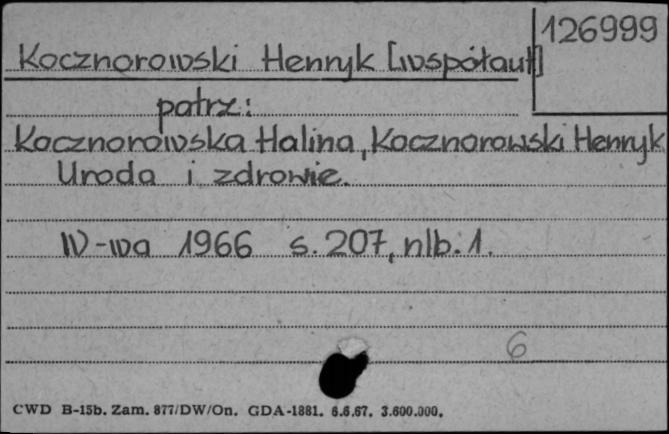 126999
Kocznorowski Henryk [współaut]
patrz:
Kocznorowska Halina, Kocznorowski Henryk
Uroda i zdrowie.
W-wa 1966 s. 207, nlb. 1.
6
CWD B-15b. Zam. 877/DW/On. GDA-1881. 6.6.67. 3.600.000.